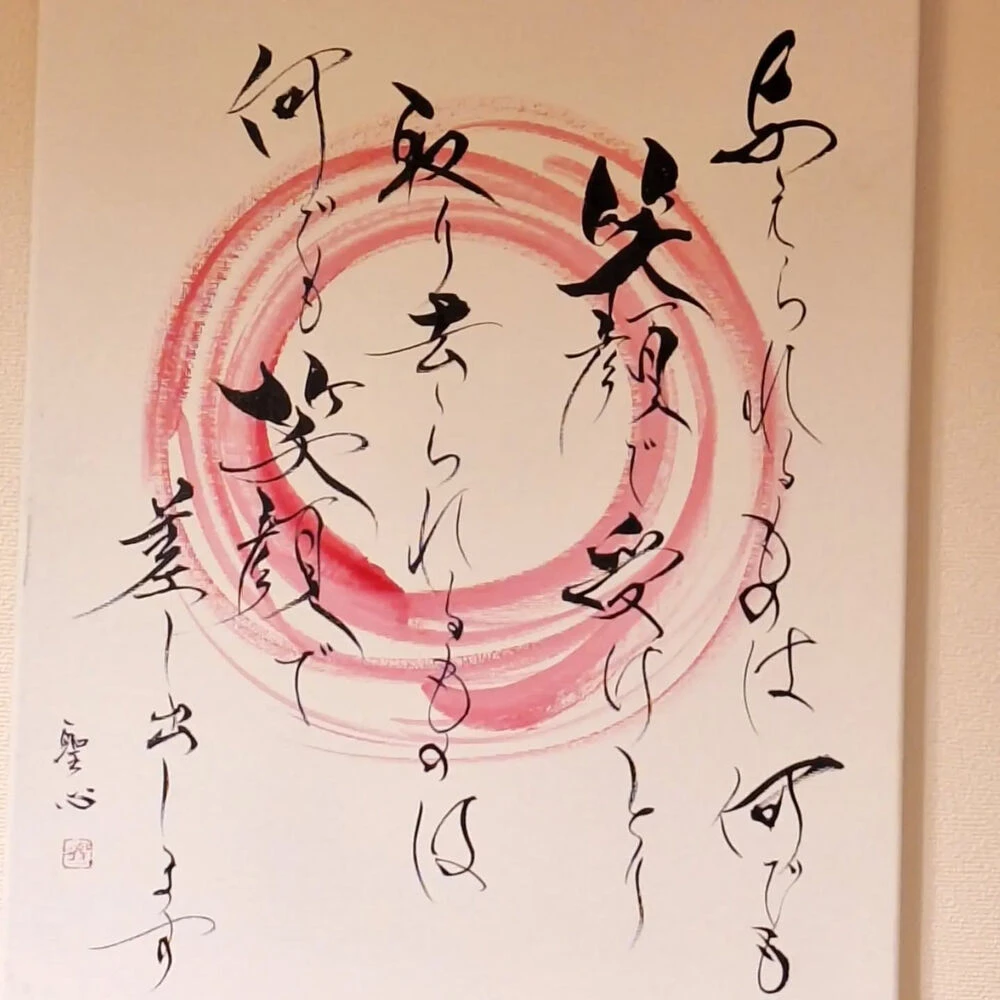 与えられるものは何でも
笑顔で受けとり
取り去られるものは
何でも笑顔で
差し出します
聖心